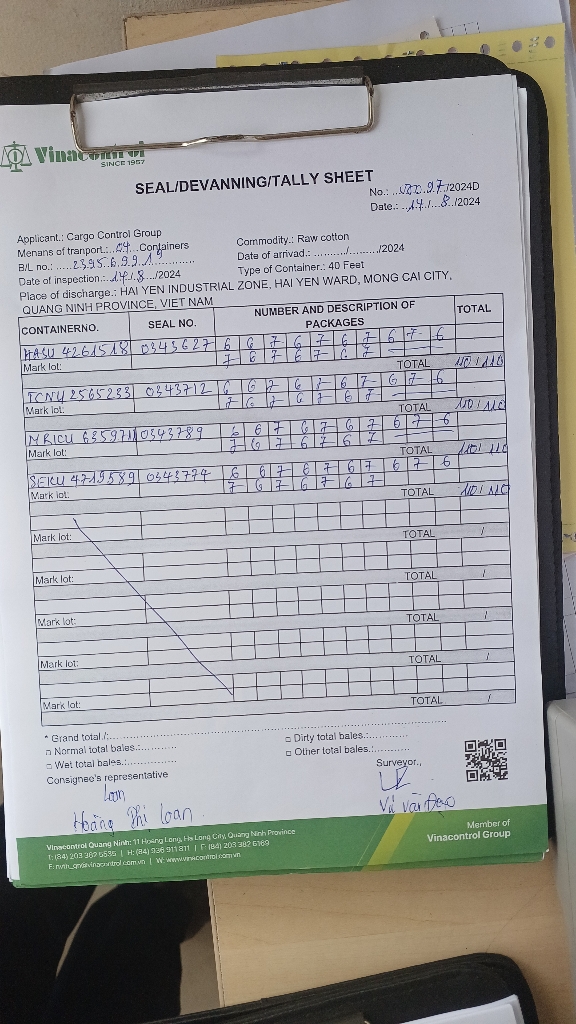 Vinacontrol
SINCE 1957
SEAL/DEVANNING/TALLY SHEET
No.: 97/2024D
Date.: 14/ 8 /2024
Applicant.: Cargo Control Group
Menans of tranport.: 04 Containers
B/L no.: 239569919
Date of inspection.: 14/ 8 /2024
Commodity.: Raw cotton
Date of arrivad.: ........../........../2024
Type of Container.: 40 Feet
Place of discharge.: HAI YEN INDUSTRIAL ZONE, HAI YEN WARD, MONG CAI CITY,
QUANG NINH PROVINCE, VIET NAM
CONTAINERNO. SEAL NO. NUMBER AND DESCRIPTION OF PACKAGES TOTAL
HASU 4261518 0343627 6 6 7 6 7 6 7 6 7 6
7 6 7 6 7 6 7
Mark lot: TOTAL 110/110
TCNU 2565233 0343712 6 6 7 6 7 6 7 6 7 6
7 6 7 6 7 6 7
Mark lot: TOTAL 110/110
MRKU 0343789 6 6 7 6 7 6 7 6 7 6
7 6 7 6 7 6 7
Mark lot: TOTAL 110/110
SEKU 4719589 0343774 6 6 7 6 7 6 7 6 7 6
7 6 7 6 7 6 7
Mark lot: TOTAL 110/110
Mark lot: TOTAL /
Mark lot: TOTAL /
Mark lot: TOTAL /
Mark lot: TOTAL /
Mark lot: TOTAL /
* Grand total./:
□ Normal total bales.:
□ Wet total bales.:
□ Dirty total bales.:
□ Other total bales.:
Consignee's representative
Surveyor.,
Loan
Hoàng Thị Loan
Vũ Văn Đạo
Vinacontrol Quang Ninh: 11 Hoang Long, Ha Long City, Quang Ninh Province
T: (84) 203 382 5535 | H: (84) 936 911 811 | F: (84) 203 382 6169
E: nvth_qn@vinacontrol.com.vn | W: www.vinacontrol.com.vn
Member of
Vinacontrol Group